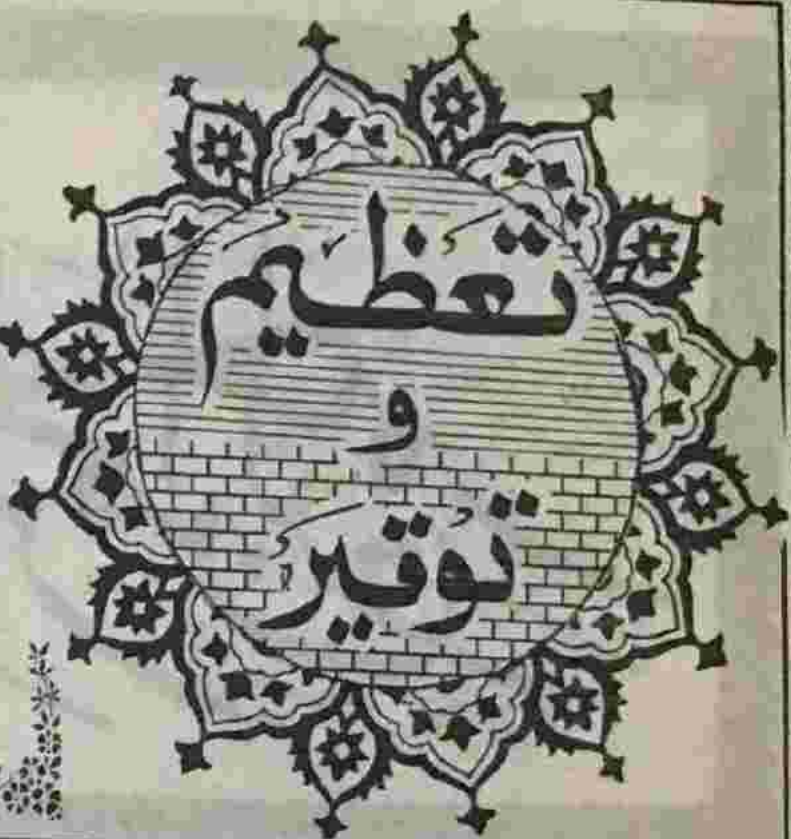 تعظیم
و
توقیر